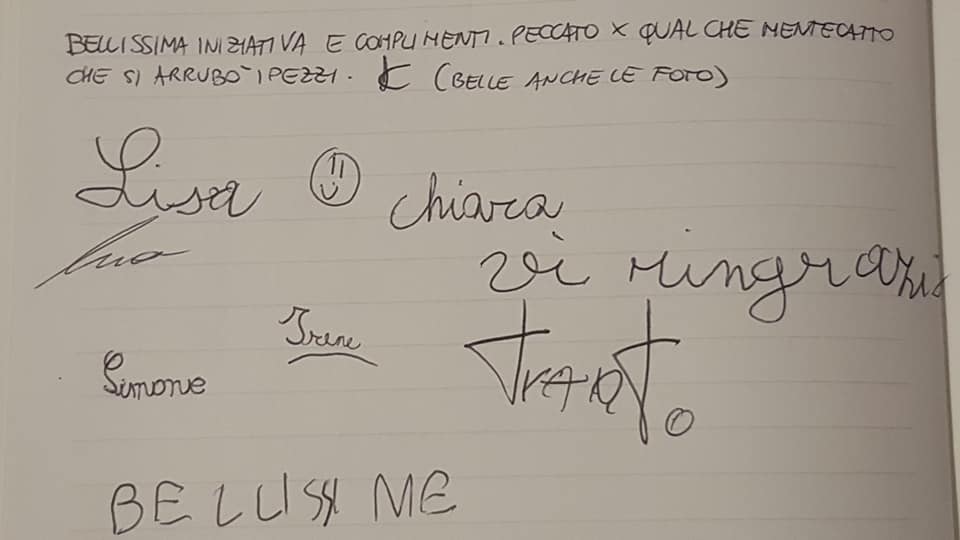 BELLISSIMA INIZIATIVA E COMPLIMENTI. PECCATO X QUALCHE MENTECATTO
CHE SI ARRUBÒ I PEZZI. (BELLE ANCHE LE FOTO)
Lisa chiara
vi ringrazio
Irene
Simone
BELLISSIME